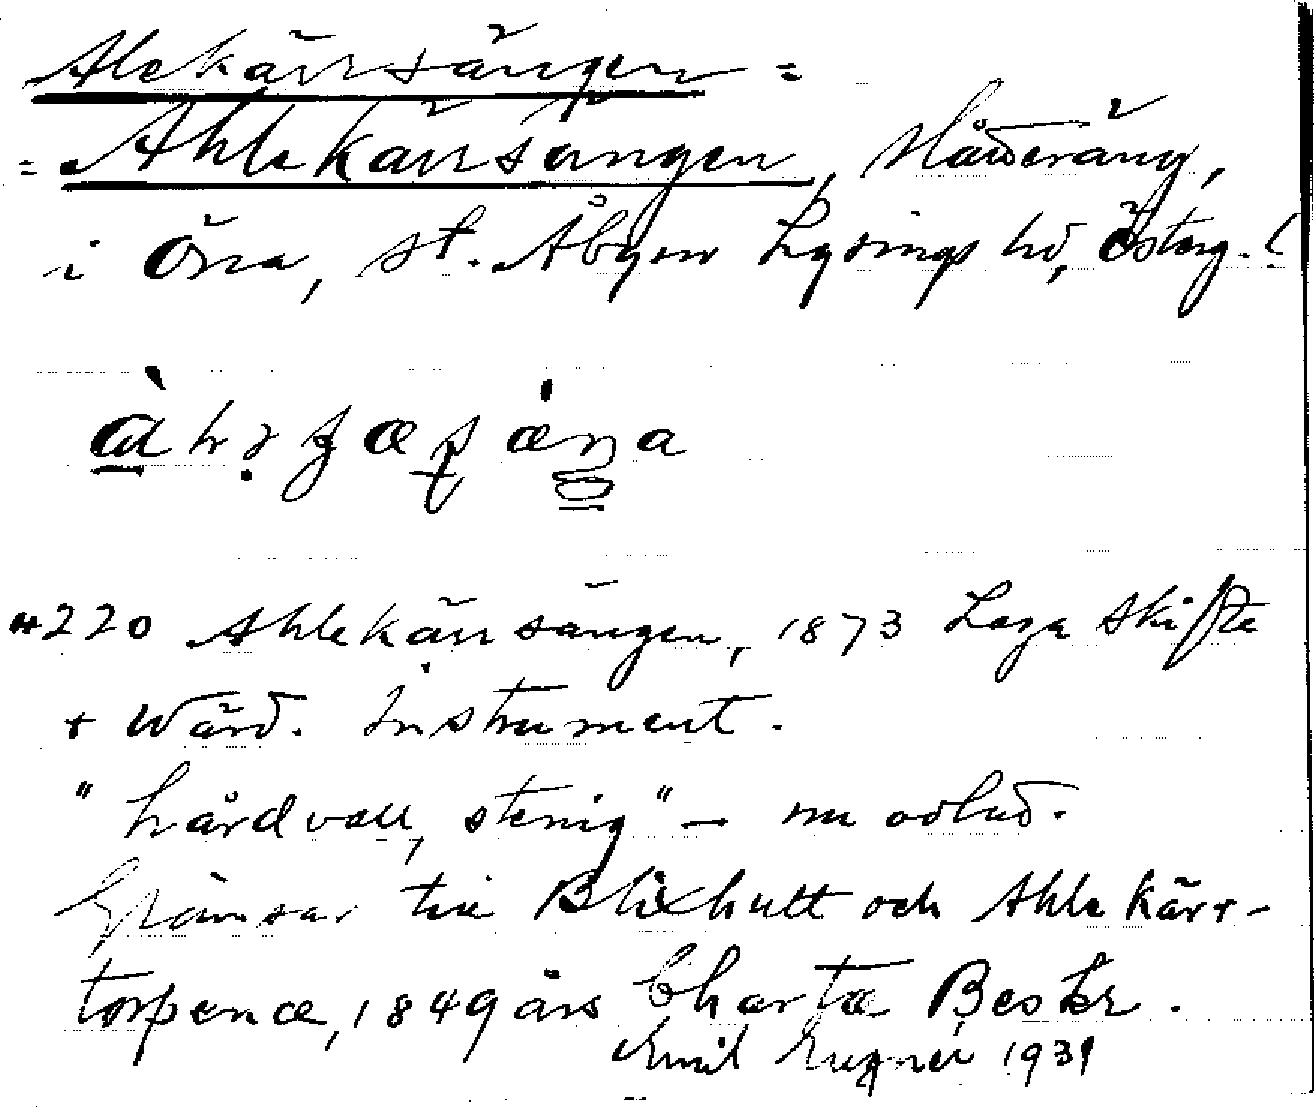 Alekärrsängen =
= Ahlekärrsängen, slåtteräng,
i Öna, st. Åbyn Lysings hd, Österg.
#220 Ahlekärrsängen, 1873 Laga Skifte
+ Wärd. Instrument.
"hårdvall, stenig" – nu odlad.
Gränsar till Blixhult och Ahlekärr-
torpena, 1849 års Charta Beskr.
Emil 1931